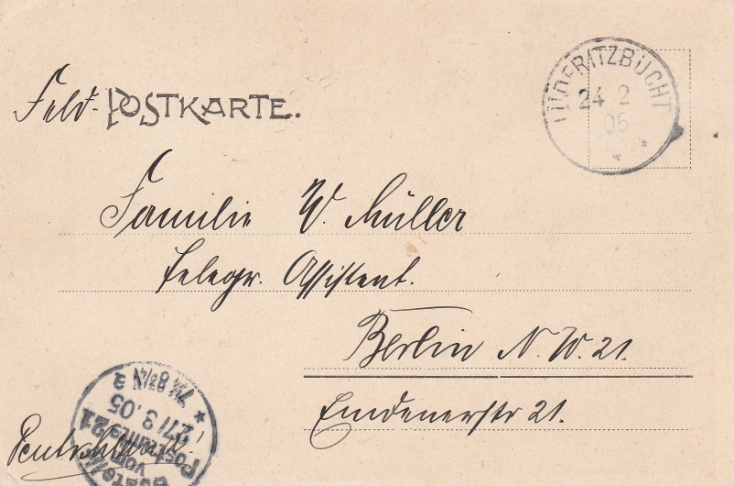 Feld-POSTKARTE.
LÜDERITZBUCHT
24 2
05
Familie W. Müller
Telegr. Assistent.
Berlin N. W. 21.
Emdenerstr 21.
Bestellt
vom
Postamte 21
27/3.05
7½-8¾N
Deutschland!